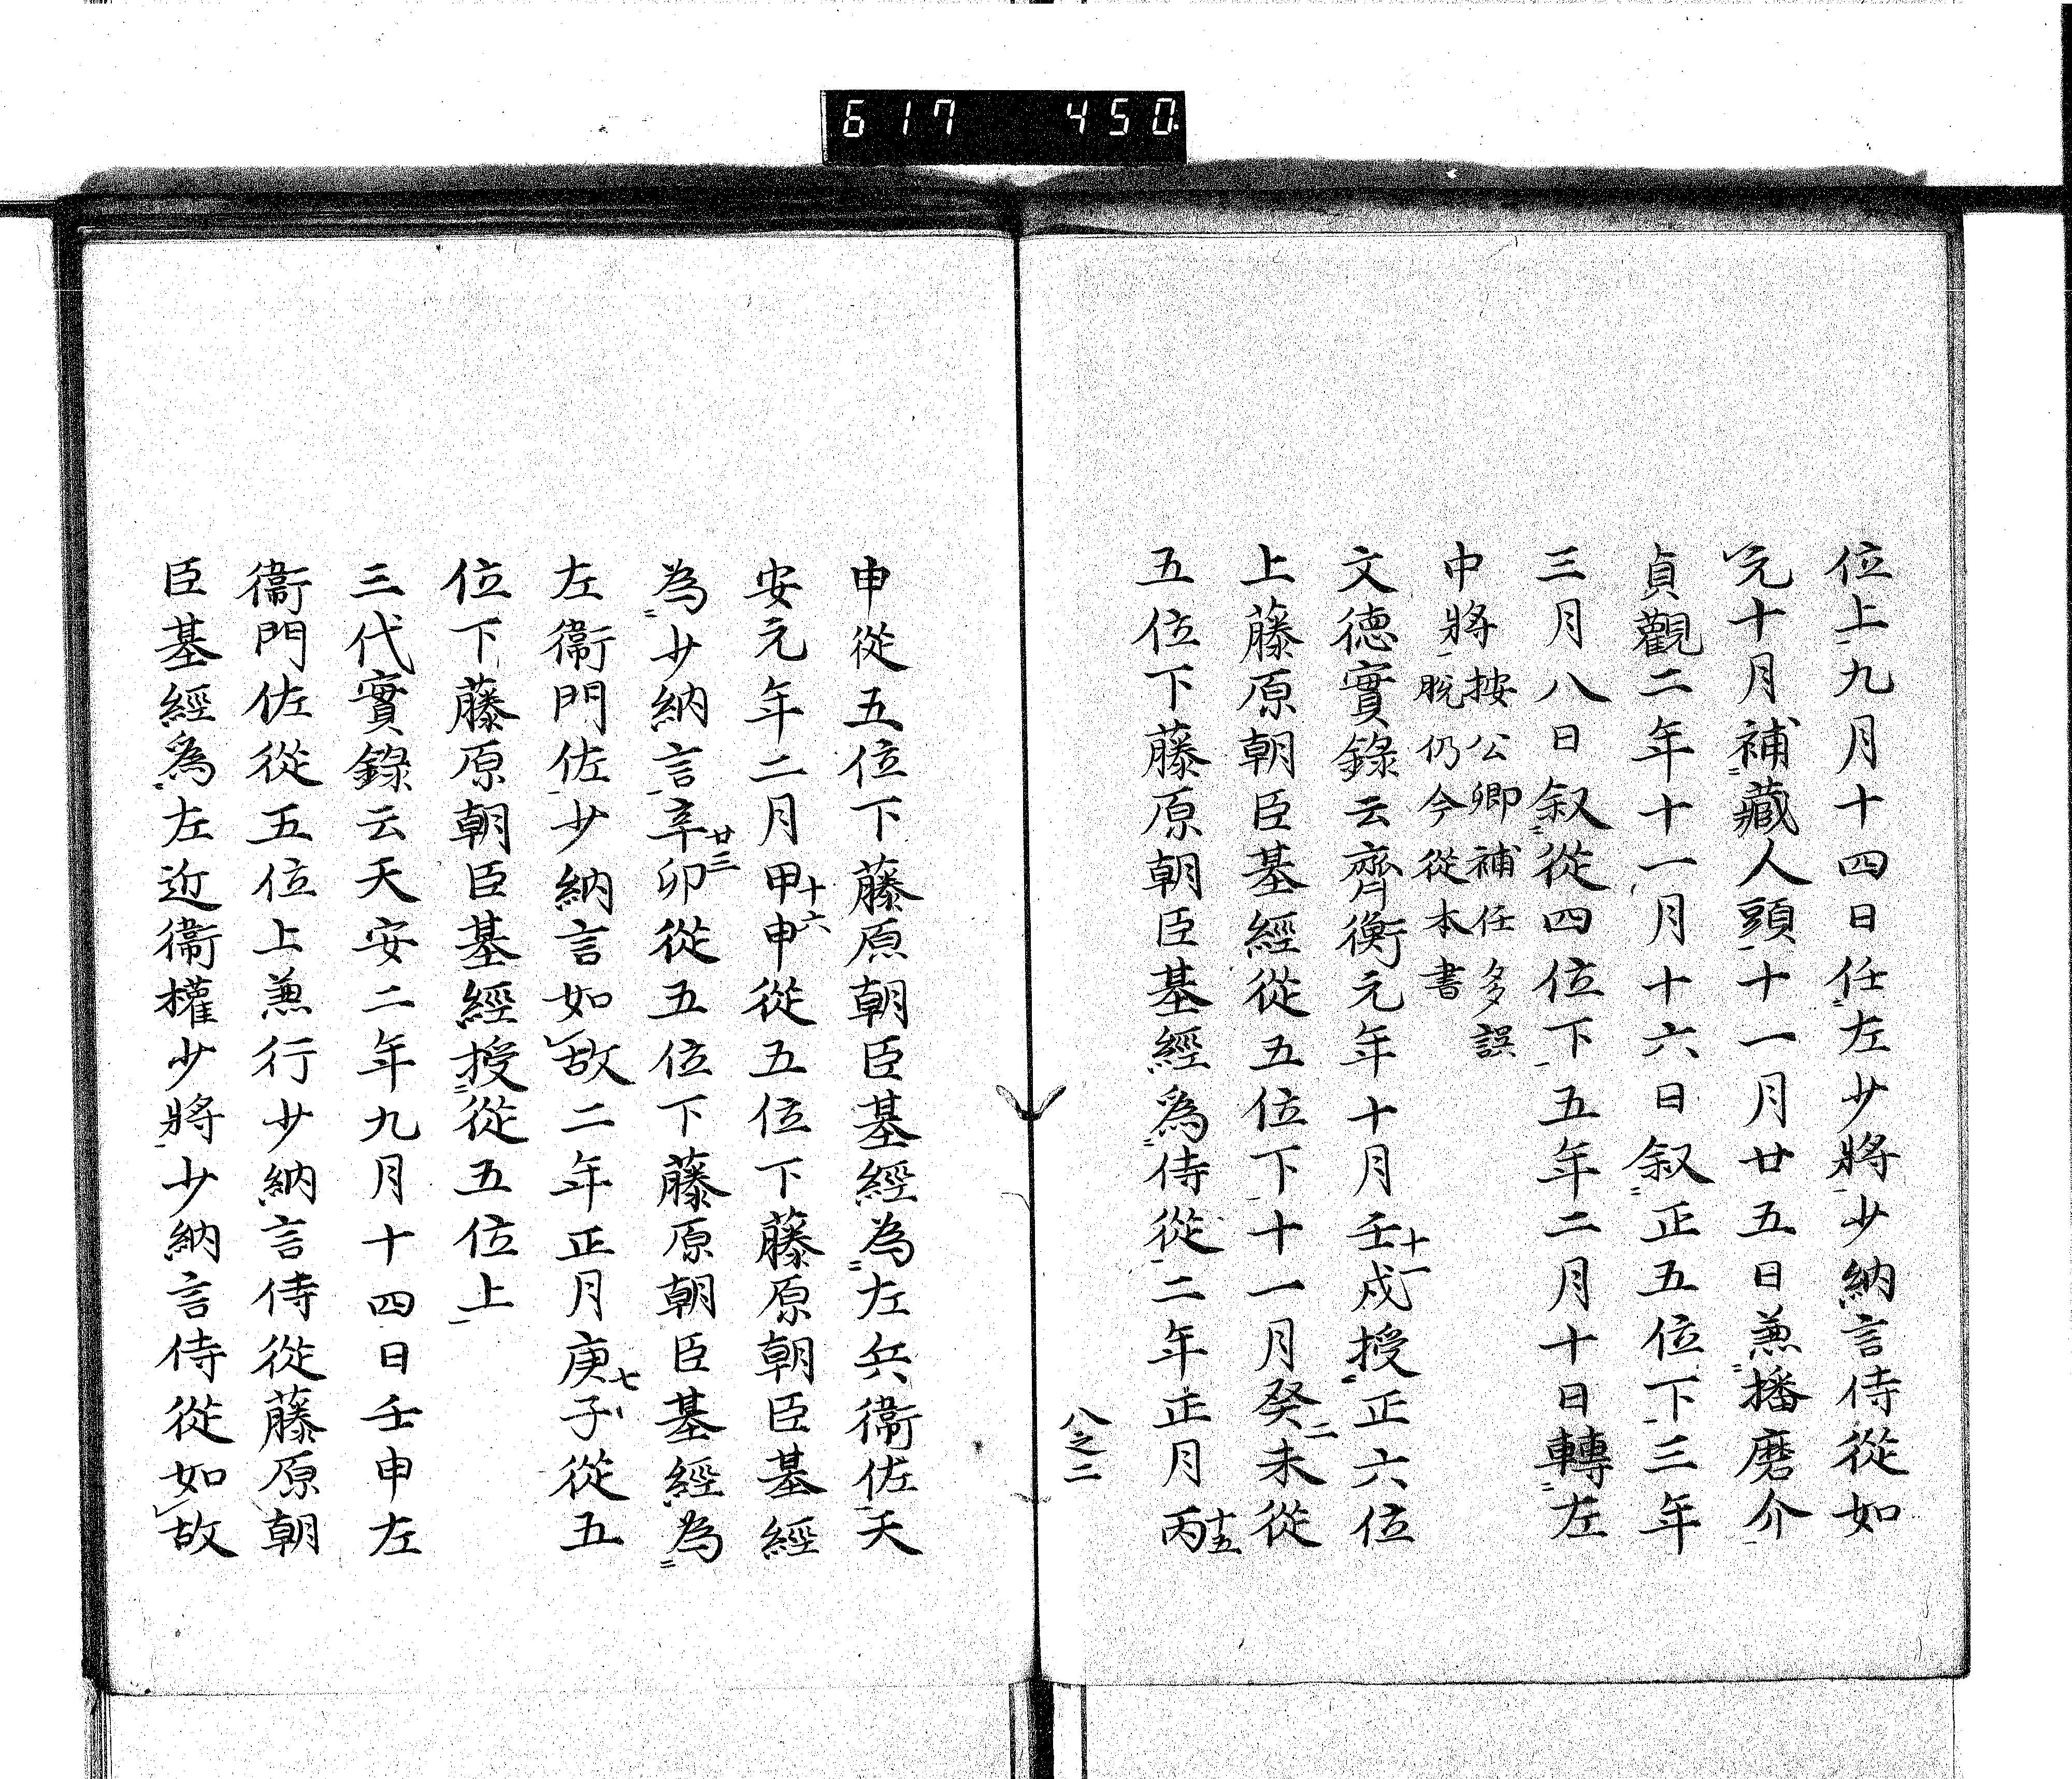 617 450
位上九月十四日任左少將少納言侍從如
元十月補藏人頭十一月廿五日兼播磨介
貞觀二年十一月十六日叙正五位下三年
三月八日叙從四位下五年二月十日轉左
中將按公卿補任多誤
脱仍今從本書
文德實錄云齊衡元年十月壬戌十一授正六位
上藤原朝臣基經從五位下十一月癸未二從
五位下藤原朝臣基經爲侍從二年正月丙十五
八之二
申從五位下藤原朝臣基經為左兵衞佐天
安元年二月甲申十六從五位下藤原朝臣基經
為少納言辛卯廿三從五位下藤原朝臣基經為
左衞門佐少納言如故二年正月庚子七從五
位下藤原朝臣基經授從五位上
三代實錄云天安二年九月十四日壬申左
衞門佐從五位上兼行少納言侍從藤原朝
臣基經爲左近衞權少將少納言侍從如故